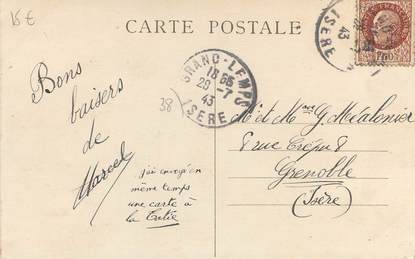 15 €
CARTE POSTALE
ISERE
43
GRAND-LEMPS
18 55
29 -7
43
ISERE
38
Bons
baisers
de
Marcel
j'ai envoyé en
même temps
une carte à
la Tatie
M et Mme G Méalonier
8 rue Crépu 8
Grenoble
(Isère)